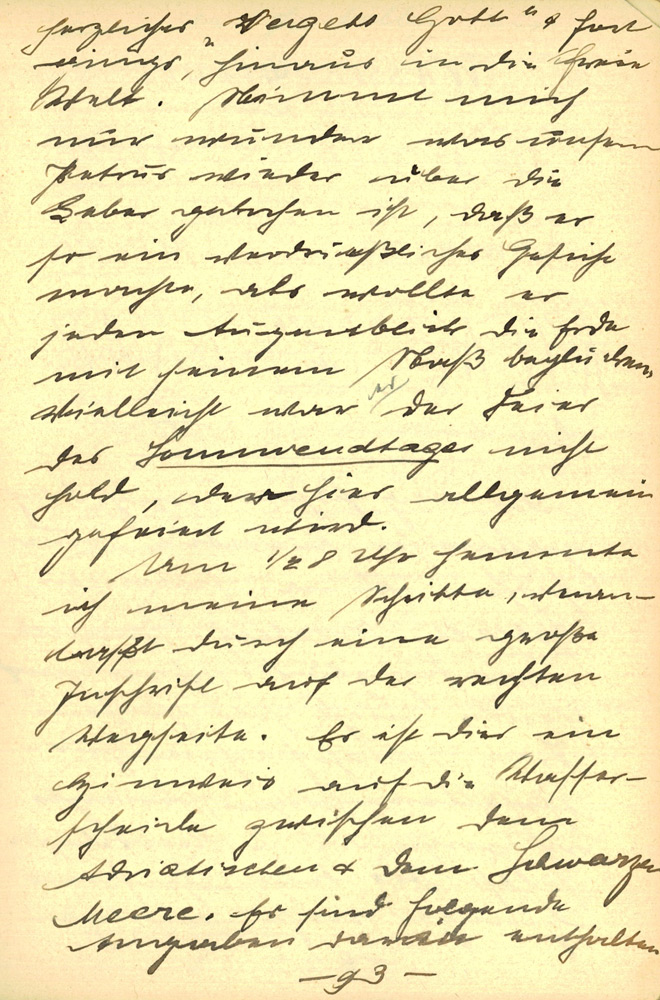 herzliches "Vergelts Gott" & fort
gings, "hinaus in die freie
Welt. Nimmt mich
nur wunder was unserm
Petrus wieder über die
Leber gekrochen ist, daß er
so ein verdrießliches Gesicht
machte, als wollte er
jeden Augenblick die Erde
mit seinem Naß beglücken,
Vielleicht war er der Feier
des Sonnwendtages nicht
hold, der hier allgemein
gefeiert wird.
Um ½ 8 Uhr hemmte
ich meine Schritte, veran-
laßt durch eine große
Inschrift auf der rechten
Wegseite. Es ist dies ein
Hinweis auf die Wasser-
scheide zwischen dem
Adriatischen & dem Schwarzen
Meere. Es sind folgende
Angaben darin enthalten
-93-